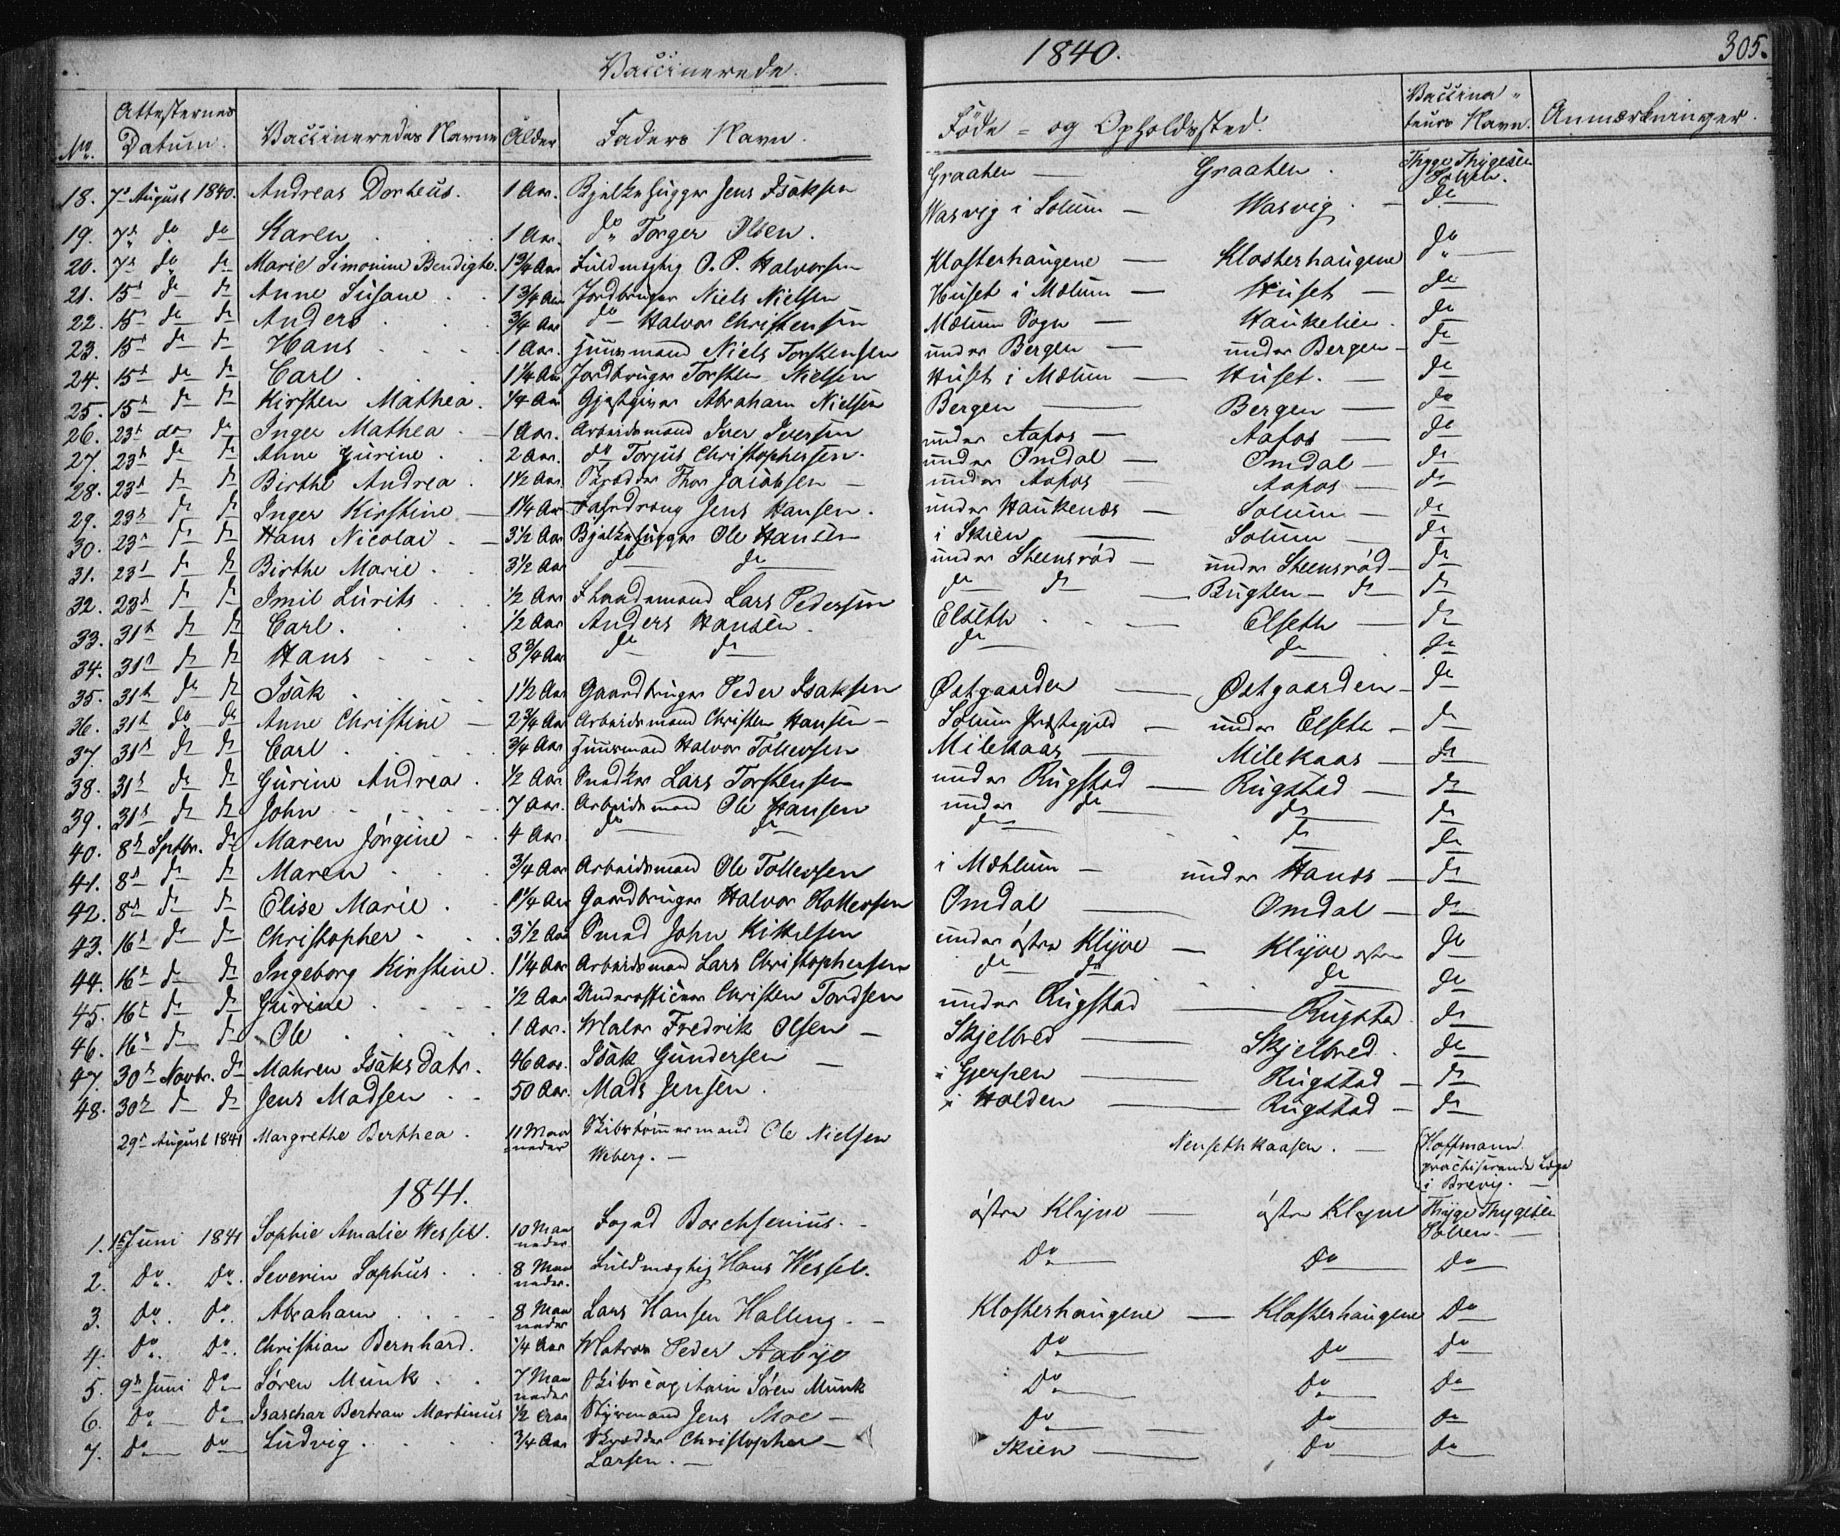 Vaccinerede. 1840. 305.
No. Attesternes Datum. Vaccineredes Navne Alder Faders Navn. Føde- og Opholdssted. Vaccinateurs Navn. Anmærkninger.
18. 7de August 1840. Andreas Dorteus. 1 Aar. Bjelkehugger Jens Isaksen Graaten — Graaten. Thyge Thygesen
19. 7de do do Karen 1 Aar. do Torger Olsen. Vasvig i Solum — Vasvig. — do
20. 7de do do Marie Simonine Bendigte. 1 3/4 Aar Fuldmægtig O. P. Halvorsen Klosterhaugene — Klosterhaugene do
21. 15de do do Anne Susane 1 3/4 Aar Jordbruger Niels Nielsen Huset i Mælum — Huset — do
22. 15de do do Anders 3/4 Aar do Halvor Christensen Mælum Sogn — Haukelien. do
23. 15de do do Hans 1 Aar. Huusmand Niels Torstensen under Bergen — under Bergen — do
24. 15de do do Carl 1 1/4 Aar Jordbruger Torsten Nielsen Huset i Mælum — Huset. — do
25. 15de do do Kirsten Mathea. 1/4 Aar Gjestgiver Abraham Nielsen Bergen — Bergen — do
26. 23de do do Inger Mathea — 1 Aar. Arbeidsmand Iver Iversen under Aafos — Aafos — do
27. 23de do do Anne Gurine. 2 Aar. do Torjus Christophersen. under Omdal — Omdal — do
28. 23de do do Birthe Andrea. 1 1/2 Aar Skrædder Thor Jacobsen — under Aafos — Aafos — do
29. 23de do do Inger Kirstine — 1 1/4 Aar Jens Hansen. under Haukenæs — Solum — do
30. 23de do do Hans Nicolai. 3 1/2 Aar Bjelkehugger Ole Hansen i Skien — Solum — do
31. 23de do do Birthe Marie. 3 1/2 Aar do do under Steensrød — under Steensrød — do
32. 23de do do Imil Lurits 1/2 Aar Strandmand Lars Pedersen do do — Bugten — do do
33. 31te do do Carl. 1/2 Aar Anders Hansen. Elseth — Elseth — do
34. 31te do do Hans 8 3/4 Aar do do do do do
35. 31te do do Isak 1 1/2 Aar Gaardbruger Peder Isaksen Østgaarden — Østgaarden — do
36. 31te do do Anne Christine — 2 3/4 Aar Arbeidsmand Christen Hansen — Solum Præstegjeld — under Elseth — do
37. 31te do do Carl 3/4 Aar Huusmand Halvor Tollevsen Milekaas — Milekaas — do
38. 31te do do Gurine Andrea. 1/2 Aar Snedker Lars Torstensen under Rugstad — Rugstad — do
39. 31te do do John 7 Aar. Arbeidsmand Ole Hansen under do do do
40. 8de Sptbr. do Maren Jørgine — 4 Aar. do do do do do
41. 8de do do Maren 3/4 Aar Arbeidsmand Ole Tollevsen i Mæhlum — under Hanes — do
42. 8de do do Elise Marie. 1 1/4 Aar Gaardbruger Halvor Rollevsen Omdal — Omdal — do
43. 16de do do Christopher 3 1/2 Aar Smed John Kittelsen under østre Klyve — Klyve østre do
44. 16de do do Ingeborg Kirstine. 1 1/4 Aar Arbeidsmand Lars Christophersen do do do do
45. 16de do do Gurine 1/2 Aar Underofficer Christen Tordsen under Rugstad — Rugstad do
46. 16de do do Ole 1 Aar. Maler Fredrik Olsen — Skjelbred — Skjelbred. do
47. 30te Novbr. do Mahren Isaksdatr. 46 Aar. Isak Gundersen — i Gjerpen — Rugstad — do
48. 30te do do Jens Madsen 50 Aar. Mads Jensen. i Holden — Rugstad — do
29de August 1841 Margrethe Berthea. 11 Maaneder Skibstømmermand Ole Nielsen Weberg. — Nensethkaasen. — Hoffmann practiserende Læge i Brevig. —
1841.
1. 1ste Juni 1841 Sophie Amalie Wessel. 10 Maaneder. Foged Borchsenius. — østre Klyve — østre Klyve Thyge Thygesen
2. Do. Do. Severin Sophus. 8 Maaneder. Fuldmægtig Hans Wessel. Do — Do — Do
3. Do. Do. Abraham 8 Maaneder Lars Hansen Halling. — Klosterhaugene — Klosterhaugene Do
4. Do. Do. Christian Bernhard. 1/4 Aar Matros Peder Aabye Do — Do — Do
5. 9de Juni Do Søren Munk 7 Maaneder Skibscapitain Søren Munk Do — Do — Do
6. Do Do Isaschar Bertram Martinus 1/2 Aar Styrmand Jens Moe — Do — Do — Do
7. Do Do Ludvig. 3/4 Aar Skrædder Christopher Larsen. — Skien — Do — Do